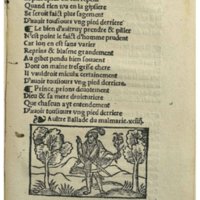 Quand rien n'a en la gipsiere
Se seroit faict plus sagement
D'avoir tousiours vng pied derriere
¶ Le bien d'autruy prendre & pillier
N'est point le faict d'homme prudent
Car lon en est sans varier
Reprins & blasme grandement
Au gibet pendu bien souuent
Dont on maine tresgrise chere
Il vauldroit mieulx certainement
D'auoir tousiours vng pied derriere
¶ Prince prions deuotement
Dieu & sa mere droicturiere
Que chascun ayt entendement
D'auoir tousiours vng pied derriere
Aultre Ballade du malmarie. xciiij.